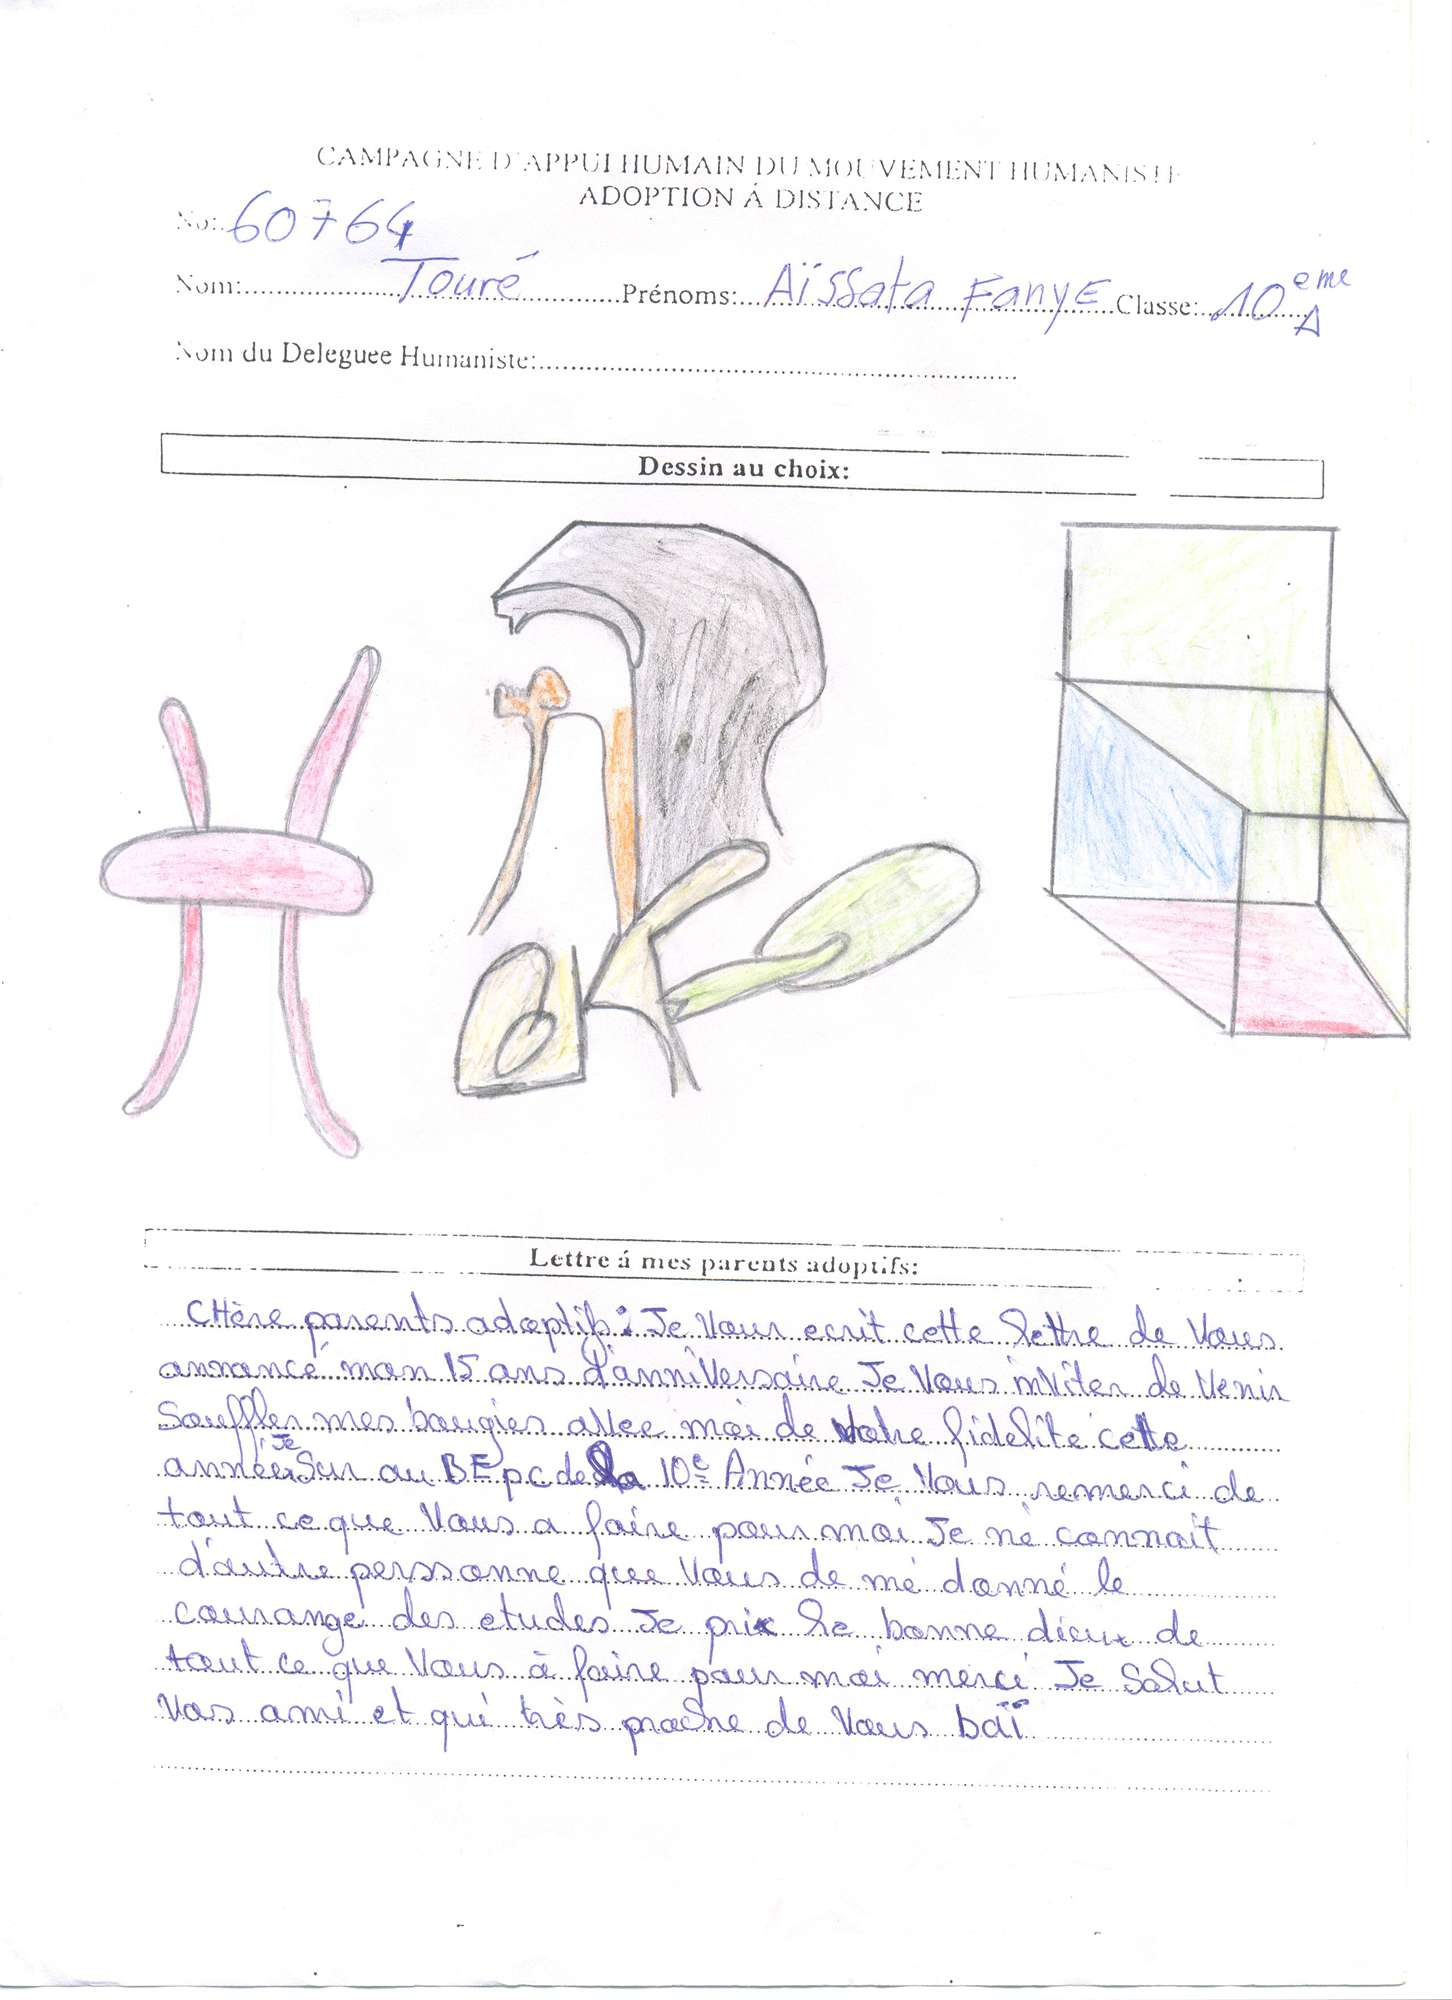 CAMPAGNE D'APPUI HUMAIN DU MOUVEMENT HUMANISTE
ADOPTION Á DISTANCE
No: 60764
Nom: Touré Prénoms: Aïssata FanyE Classe: 10eme A
Nom du Deleguee Humaniste:
Dessin au choix:
Lettre á mes parents adoptifs:
CHère parents adoptifs: Je Vous ecrit cette lettre de Vous
annoncé mon 15 ans d'anniVersaire Je Vous inViter de Venir
Souffler mes bougies aVec moi de Votre fidelité cette
année Je Sur au BEpc de la 10e Année Je Vous remerci de
tout ce que Vous a faire pour moi Je ne connait
d'autre perssonne que Vous de mé donné le
courange des etudes Je prix le bonne dieux de
tout ce que Vous à faire pour moi merci Je Salut
Vos ami et qui très proche de Vous baï